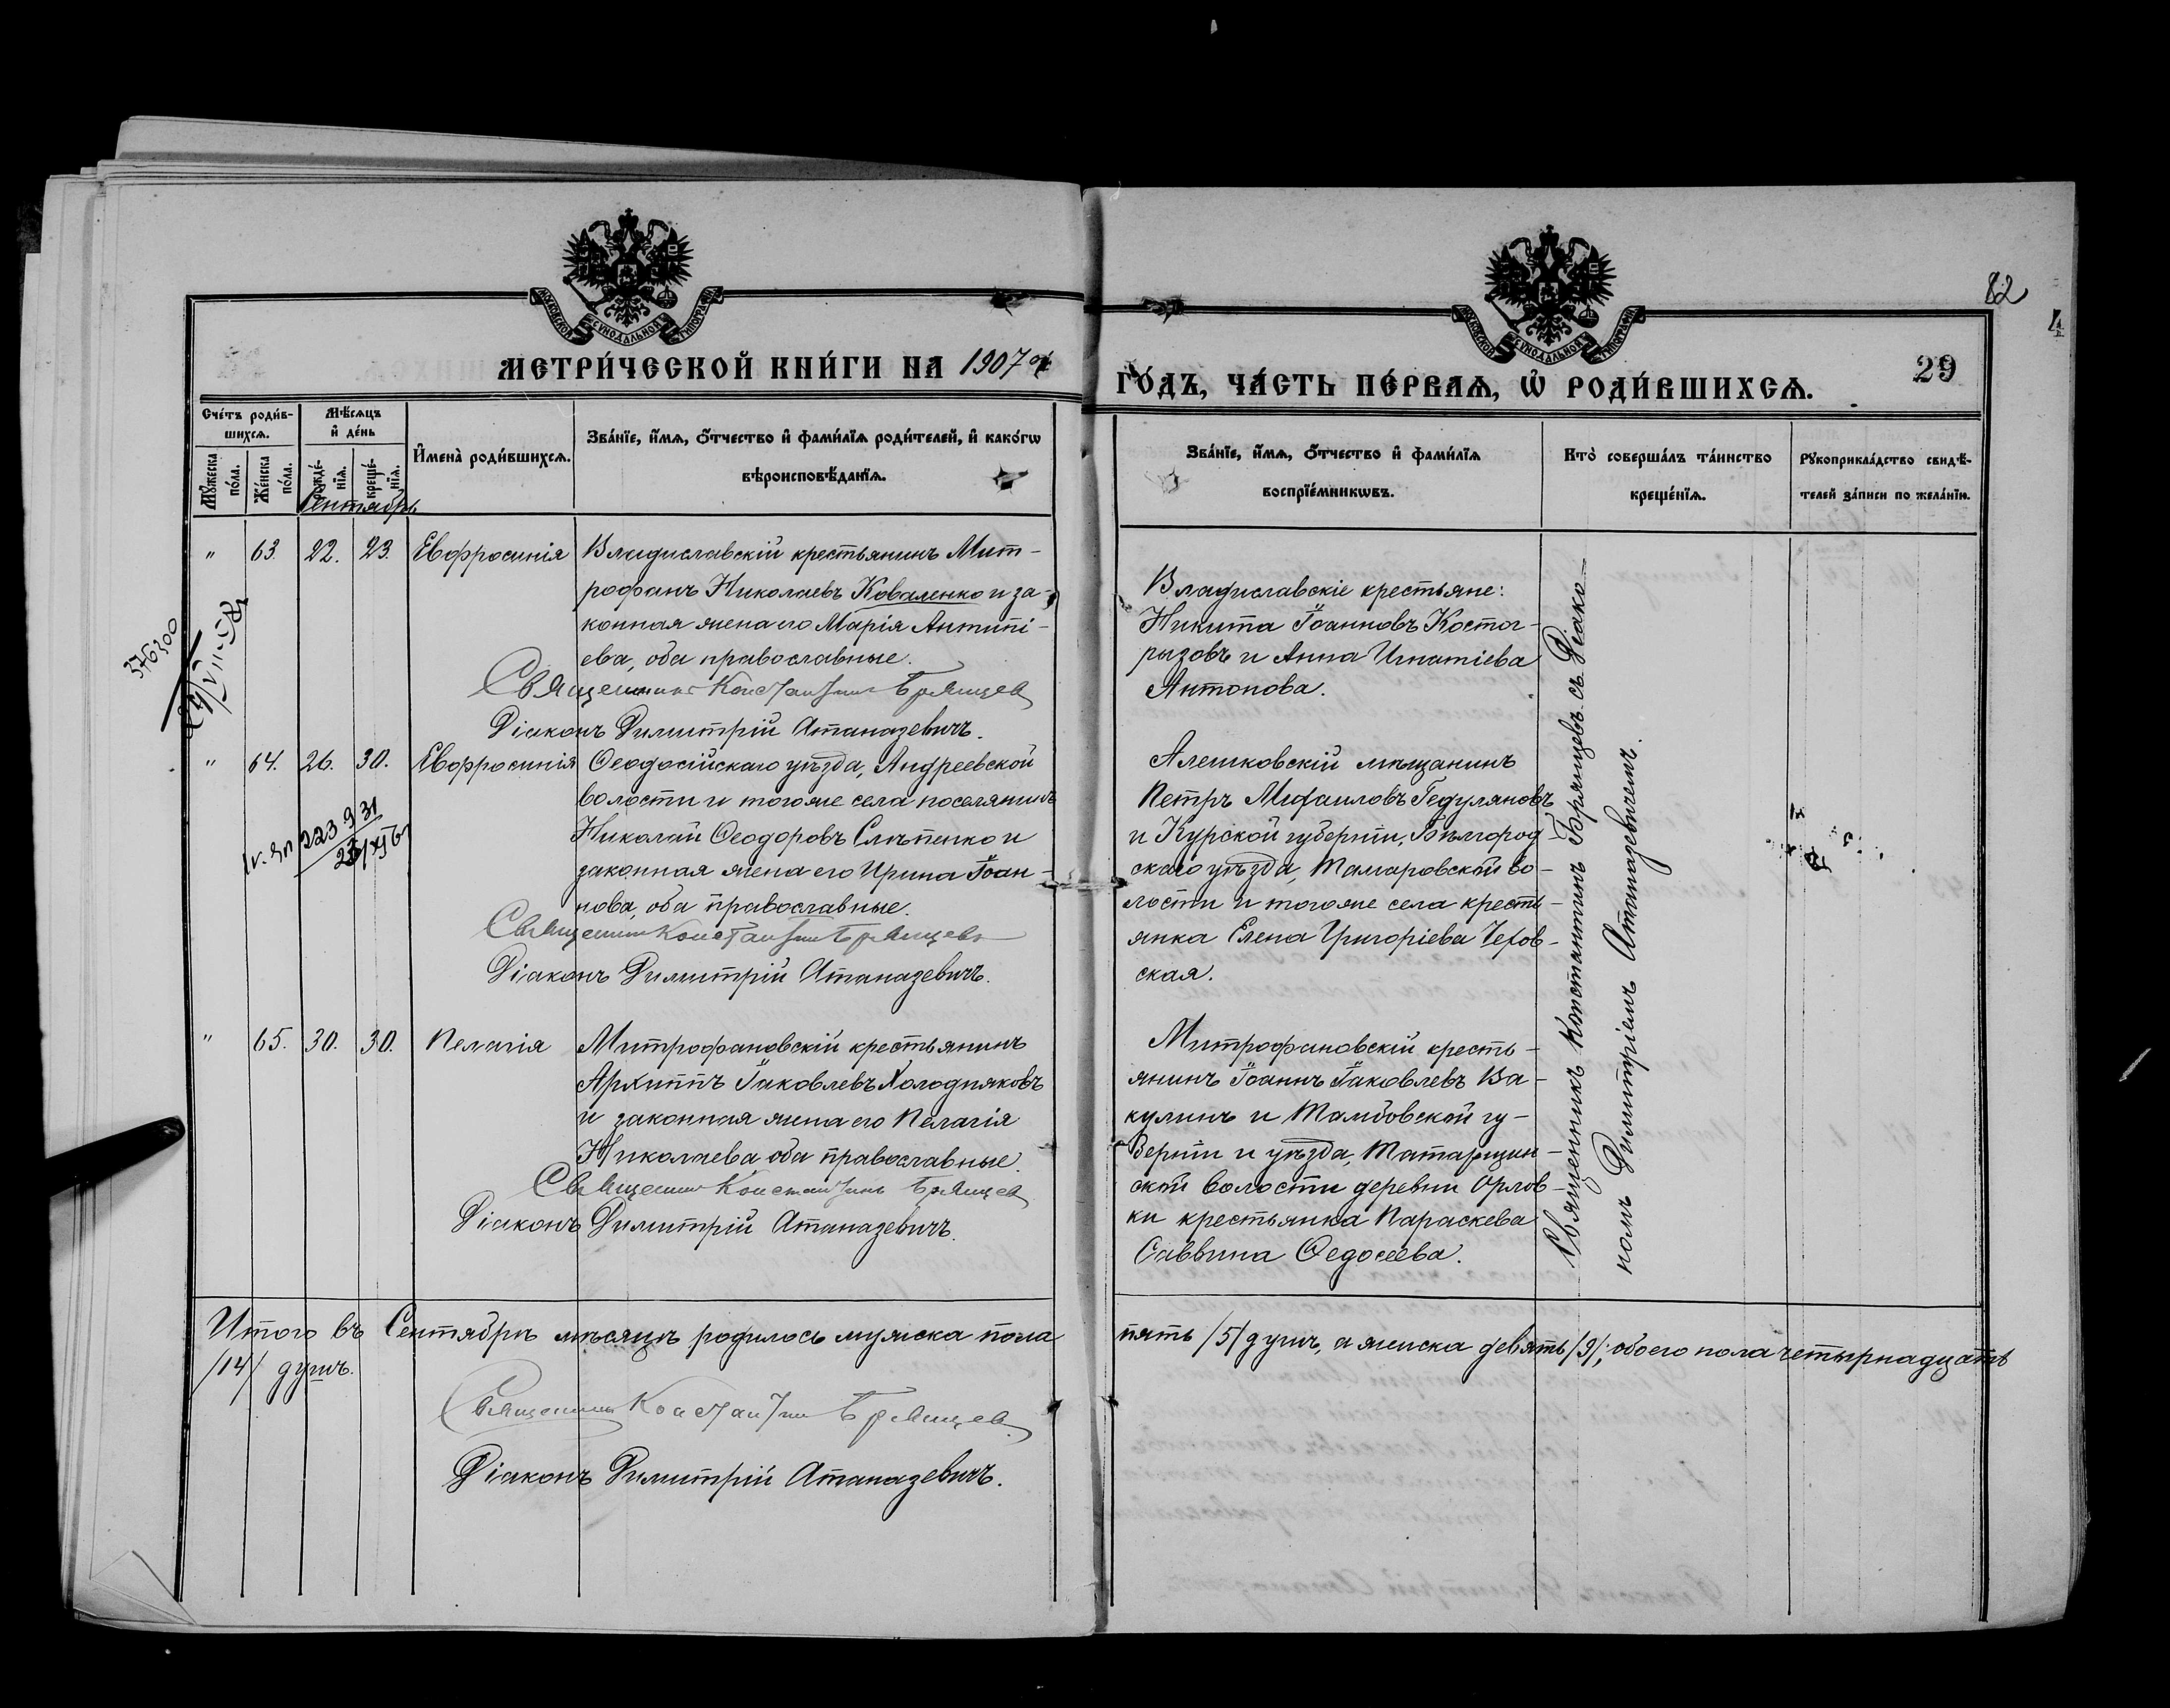 82
4
29
МОСКОВСКОЙ СѴНОДАЛЬНОЙ ТИПОГРАФІИ
МОСКОВСКОЙ СѴНОДАЛЬНОЙ ТИПОГРАФІИ
МЕТРИ́ЧЕСКОЙ КНИ́ГИ НА 1907 й
ГО́ДЪ, ЧА́СТЬ ПЕ́РВАѦ, Ѡ҆ РОДИ́ВШИХСѦ.
Сче́тъ роди́в-
шихсѧ.
Мꙋ́жеска
по́ла.
Же́нска
по́ла.
Мѣ́сѧцъ
и҆ де́нь
рожде́-
нїѧ.
креще́-
нїѧ.
И҆мена̀ роди́вшихсѧ.
Зва́нїе, и҆́мѧ, ѻ҆́тчество и҆ фами́лїѧ роди́телей, и҆ како́гѡ
вѣроисповѣ́данїѧ.
Зва́нїе, и҆́мѧ, ѻ҆́тчество и҆ фами́лїѧ
воспрїе́мникѡвъ.
Кто̀ соверша́лъ та́инство
креще́нїѧ.
Рꙋкоприкла́дство свидѣ́-
телей за́писи по жела́нїю.
Сентябрь
" 63. 22. 23. Евфросинія
Владиславскій крестьянинъ Мит-
рофанъ Николаевъ Коваленко и за-
конная жена его Марія Антипі-
ева, оба православные.
Священникъ Константинъ Брянцев
Діаконъ Димитрій Атаназевичъ.
Владиславскіе крестьяне:
Никита Іоанновъ Костог-
рызовъ и Анна Игнатіева
Антонова.
376300
" 64. 26. 30. Евфросинія
Ѳеодосійскаго уѣзда, Андреевской
волости и тогоже села поселянинъ
Николай Ѳеодоровъ Слѣпенко и
законная жена его Ирина Іоан-
нова, оба православные.
Священникъ Константинъ Брянцевъ
Діаконъ Димитрій Атаназевичъ.
Алешковскій мѣщанинъ
Петръ Михаиловъ Гедуляновъ
и Курской губерніи, Бѣлгород-
скаго уѣзда, Тамаровской во-
лости и тогоже села кресть-
янка Елена Григоріева Чехов-
ская.
" 65. 30. 30. Пелагія
Митрофановскій крестьянинъ
Архиппъ Іаковлевъ Холодняковъ
и законная жена его Пелагія
Николаева оба православные.
Священникъ Константинъ Брянцев
Діаконъ Димитрій Атаназевичъ.
Митрофановскій кресть-
янинъ Іоаннъ Іаковлевъ Ва-
кулинъ и Тамбовской гу-
берніи и уѣзда, Татарщин-
ской волости деревни Орлов-
ки крестьянка Параскева
Саввина Ѳедосеева.
Священникъ Константинъ Брянцевъ съ Діако-
номъ Димитріемъ Атаназевичемъ.
Итого въ Сентябрѣ мѣсяцѣ родилось мужска пола пять /5/ душъ, а женска девять /9/; обоего пола четырнадцать
/14/ душъ.
Священникъ Константин Брянцев
Діаконъ Димитрій Атаназевичъ.